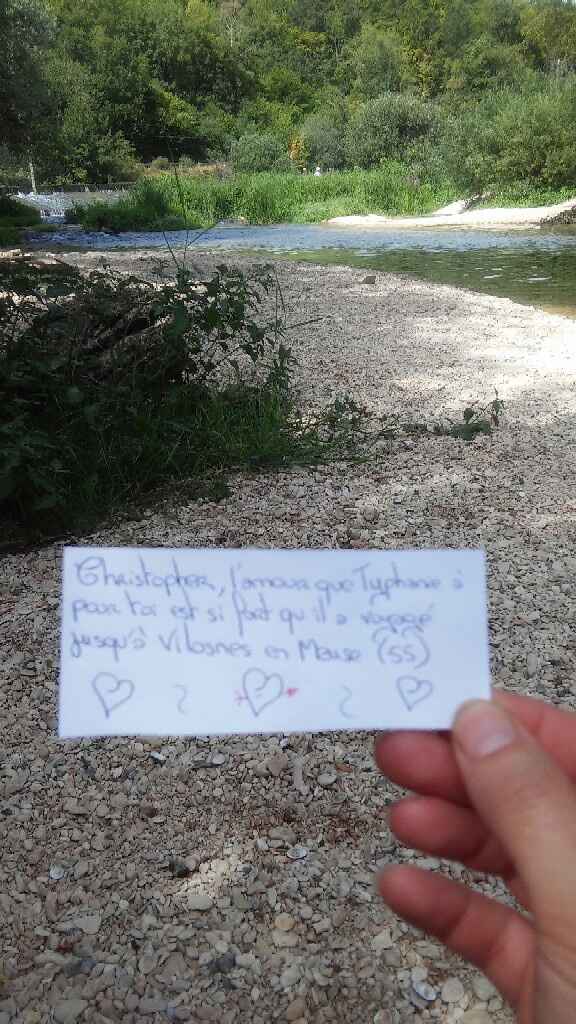 Christopher, l'amour que Typhanie a
pour toi est si fort qu'il a voyagé
jusqu'à Vilosnes en Meuse (55)